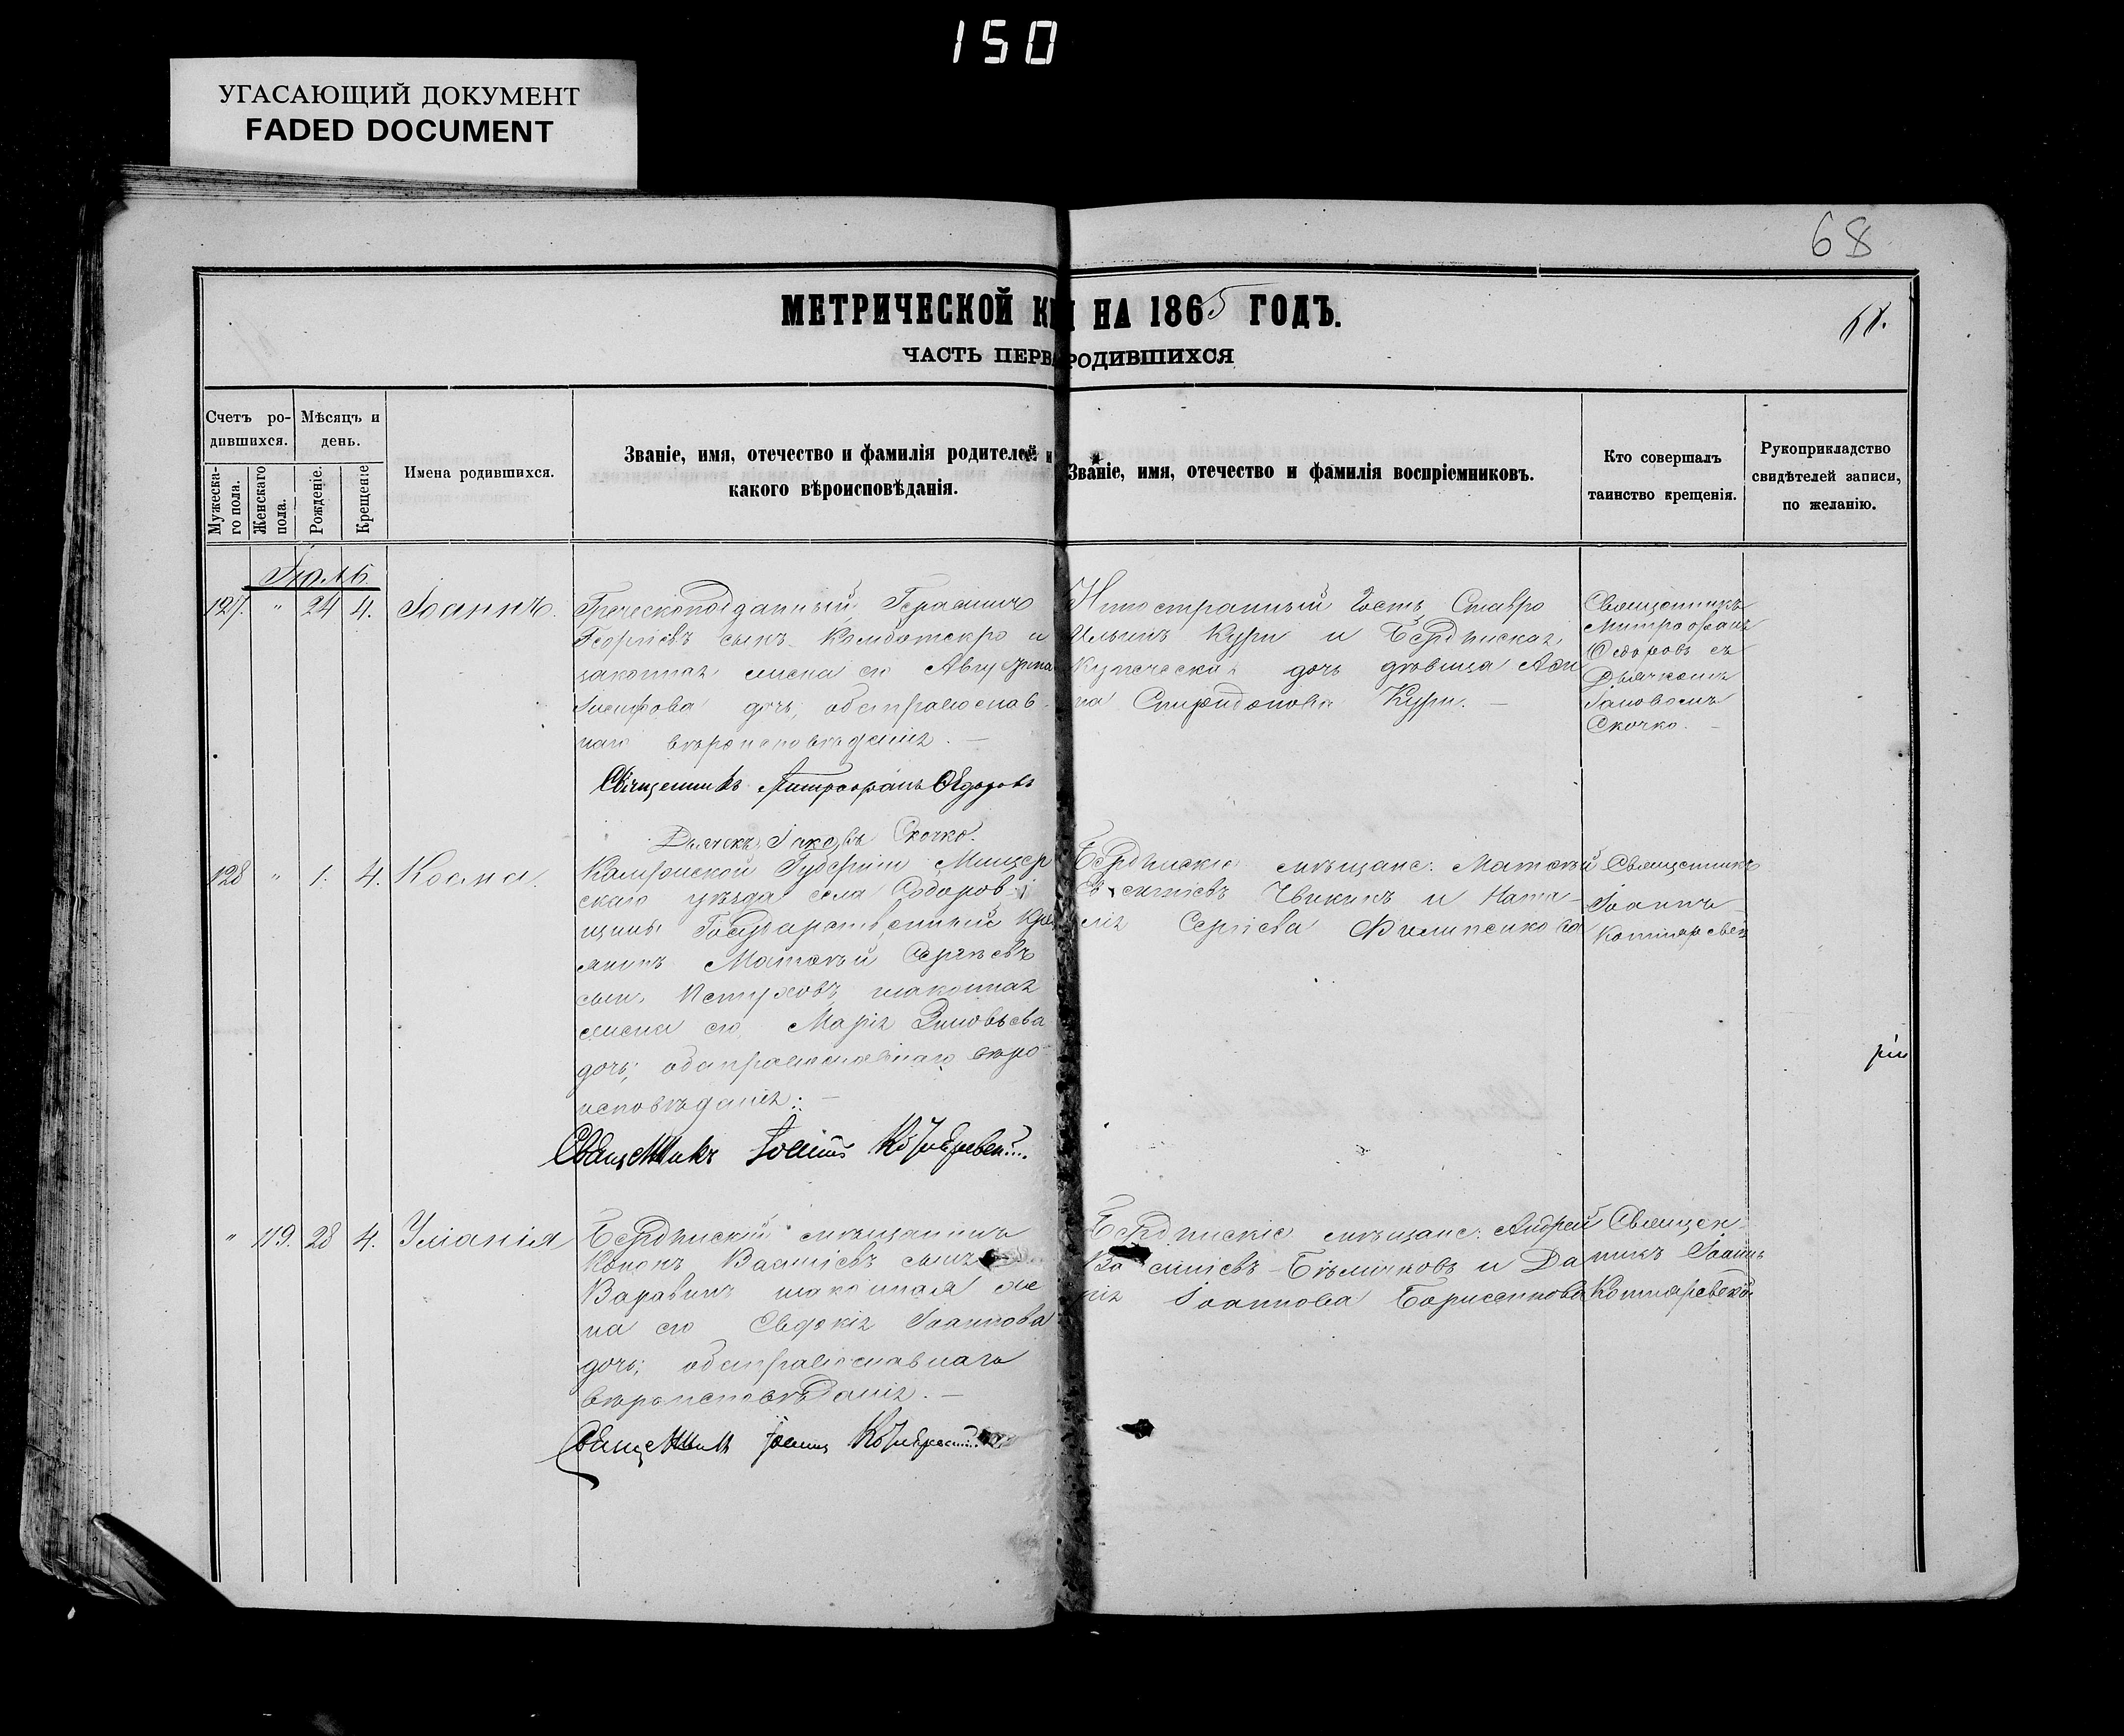 150
УГАСАЮЩИЙ ДОКУМЕНТ
FADED DOCUMENT
68
МЕТРИЧЕСКОЙ КН НА 1865 ГОДЪ.
68.
ЧАСТЬ ПЕРВА РОДИВШИХСЯ
Счетъ ро-
дившихся.
Мужеска-
го пола.
Женскаго
пола.
Мѣсяцъ и
день.
Рожденіе.
Крещеніе
Имена родившихся.
Званіе, имя, отечество и фамилія родителей и
какого вѣроисповѣданія.
Званіе, имя, отечество и фамилія воспріемниковъ.
Кто совершалъ
таинство крещенія.
Рукоприкладство
свидѣтелей записи,
по желанію.
127. " 24 4. Іоаннъ.
Греческоподданный Герасимъ
Георгіевъ сынъ и
законная жена его
дочь, оба православ-
наго вѣроисповѣданія. —
Священникъ Митрофанъ Ѳедоровъ
Дьячекъ Іаковъ Скочко.
Иностранный Гость Ставро
Ильинъ Кури и Бердянская
Купеческая дочь дѣвица Анн
на Спиридонова Кури. —
Священникъ
Митрофанъ
Ѳедоровъ съ
Дьячкомъ
Іаковомъ
Скочко. —
128 " 1. 4. Иоана.
Губерніи
скаго уѣзда села
щины Государственный Крес
янинъ Матѳей Сергѣевъ
сынъ Петуховъ, законная
жена его Марія Зиновьева
дочь; оба православнаго вѣро-
исповѣданія: —
Священникъ Іоаннъ Котляревскій
Бердянскіе мѣщане: Матѳей
Чвикинъ и Ната-
лія Сергіева Филипенкова
Священникъ
Іоаннъ
Котляревск
" 119. 28 4. Уліанія
Бердянскій мѣщанинъ
Кононъ Василіевъ сынъ
Варавинъ законная же
на его Евдокія Іоаннова
дочь; оба православнаго
вѣроисповѣданія. —
Священникъ Іоаннъ Котляревскій
Бердянскіе мѣщане: Андрей
Василіевъ и Да
рія Іоаннова Борисенкова
Священ-
никъ Іоаннъ
Котляревскій
рій